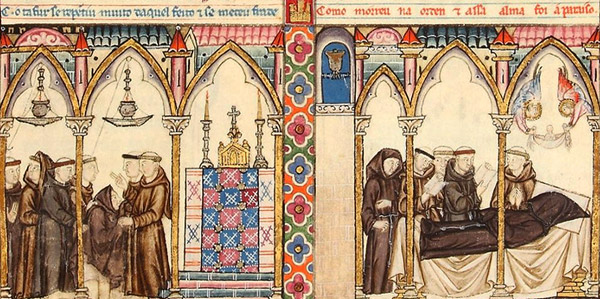 C·o tafur se repẽtiu muito daquel feito ⁊ se meteu frade
Como morreu na orden ⁊ assa alma foi a paraiso.